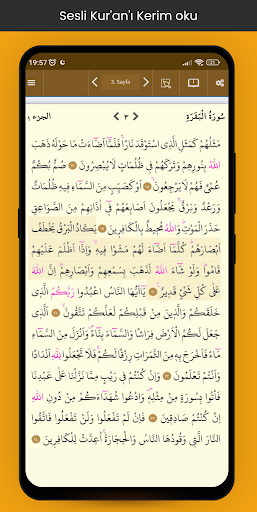 Sesli Kur'an'ı Kerim oku
19:57
3. Sayfa
سُورَةُ الْبَقَرَةِ
٣
الجزء ١
مَثَلُهُمْ كَمَثَلِ الَّذِي اسْتَوْقَدَ نَارًا فَلَمَّا أَضَاءَتْ مَا حَوْلَهُ ذَهَبَ
اللّٰهُ بِنُورِهِمْ وَتَرَكَهُمْ فِي ظُلُمَاتٍ لَا يُبْصِرُونَ ١٧ صُمٌّ بُكْمٌ
عُمْيٌ فَهُمْ لَا يَرْجِعُونَ ١٨ أَوْ كَصَيِّبٍ مِنَ السَّمَاءِ فِيهِ ظُلُمَاتٌ
وَرَعْدٌ وَبَرْقٌ يَجْعَلُونَ أَصَابِعَهُمْ فِي آذَانِهِمْ مِنَ الصَّوَاعِقِ
حَذَرَ الْمَوْتِ وَاللّٰهُ مُحِيطٌ بِالْكَافِرِينَ ١٩ يَكَادُ الْبَرْقُ يَخْطَفُ
أَبْصَارَهُمْ كُلَّمَا أَضَاءَ لَهُمْ مَشَوْا فِيهِ وَإِذَا أَظْلَمَ عَلَيْهِمْ
قَامُوا وَلَوْ شَاءَ اللّٰهُ لَذَهَبَ بِسَمْعِهِمْ وَأَبْصَارِهِمْ إِنَّ اللّٰهَ
عَلَى كُلِّ شَيْءٍ قَدِيرٌ ٢٠ يَا أَيُّهَا النَّاسُ اعْبُدُوا رَبَّكُمُ الَّذِي
خَلَقَكُمْ وَالَّذِينَ مِنْ قَبْلِكُمْ لَعَلَّكُمْ تَتَّقُونَ ٢١ الَّذِي
جَعَلَ لَكُمُ الْأَرْضَ فِرَاشًا وَالسَّمَاءَ بِنَاءً وَأَنْزَلَ مِنَ السَّمَاءِ
مَاءً فَأَخْرَجَ بِهِ مِنَ الثَّمَرَاتِ رِزْقًا لَكُمْ فَلَا تَجْعَلُوا لِلّٰهِ أَنْدَادًا
وَأَنْتُمْ تَعْلَمُونَ ٢٢ وَإِنْ كُنْتُمْ فِي رَيْبٍ مِمَّا نَزَّلْنَا عَلَى عَبْدِنَا
فَأْتُوا بِسُورَةٍ مِنْ مِثْلِهِ وَادْعُوا شُهَدَاءَكُمْ مِنْ دُونِ اللّٰهِ
إِنْ كُنْتُمْ صَادِقِينَ ٢٣ فَإِنْ لَمْ تَفْعَلُوا وَلَنْ تَفْعَلُوا فَاتَّقُوا
النَّارَ الَّتِي وَقُودُهَا النَّاسُ وَالْحِجَارَةُ أُعِدَّتْ لِلْكَافِرِينَ ٢٤